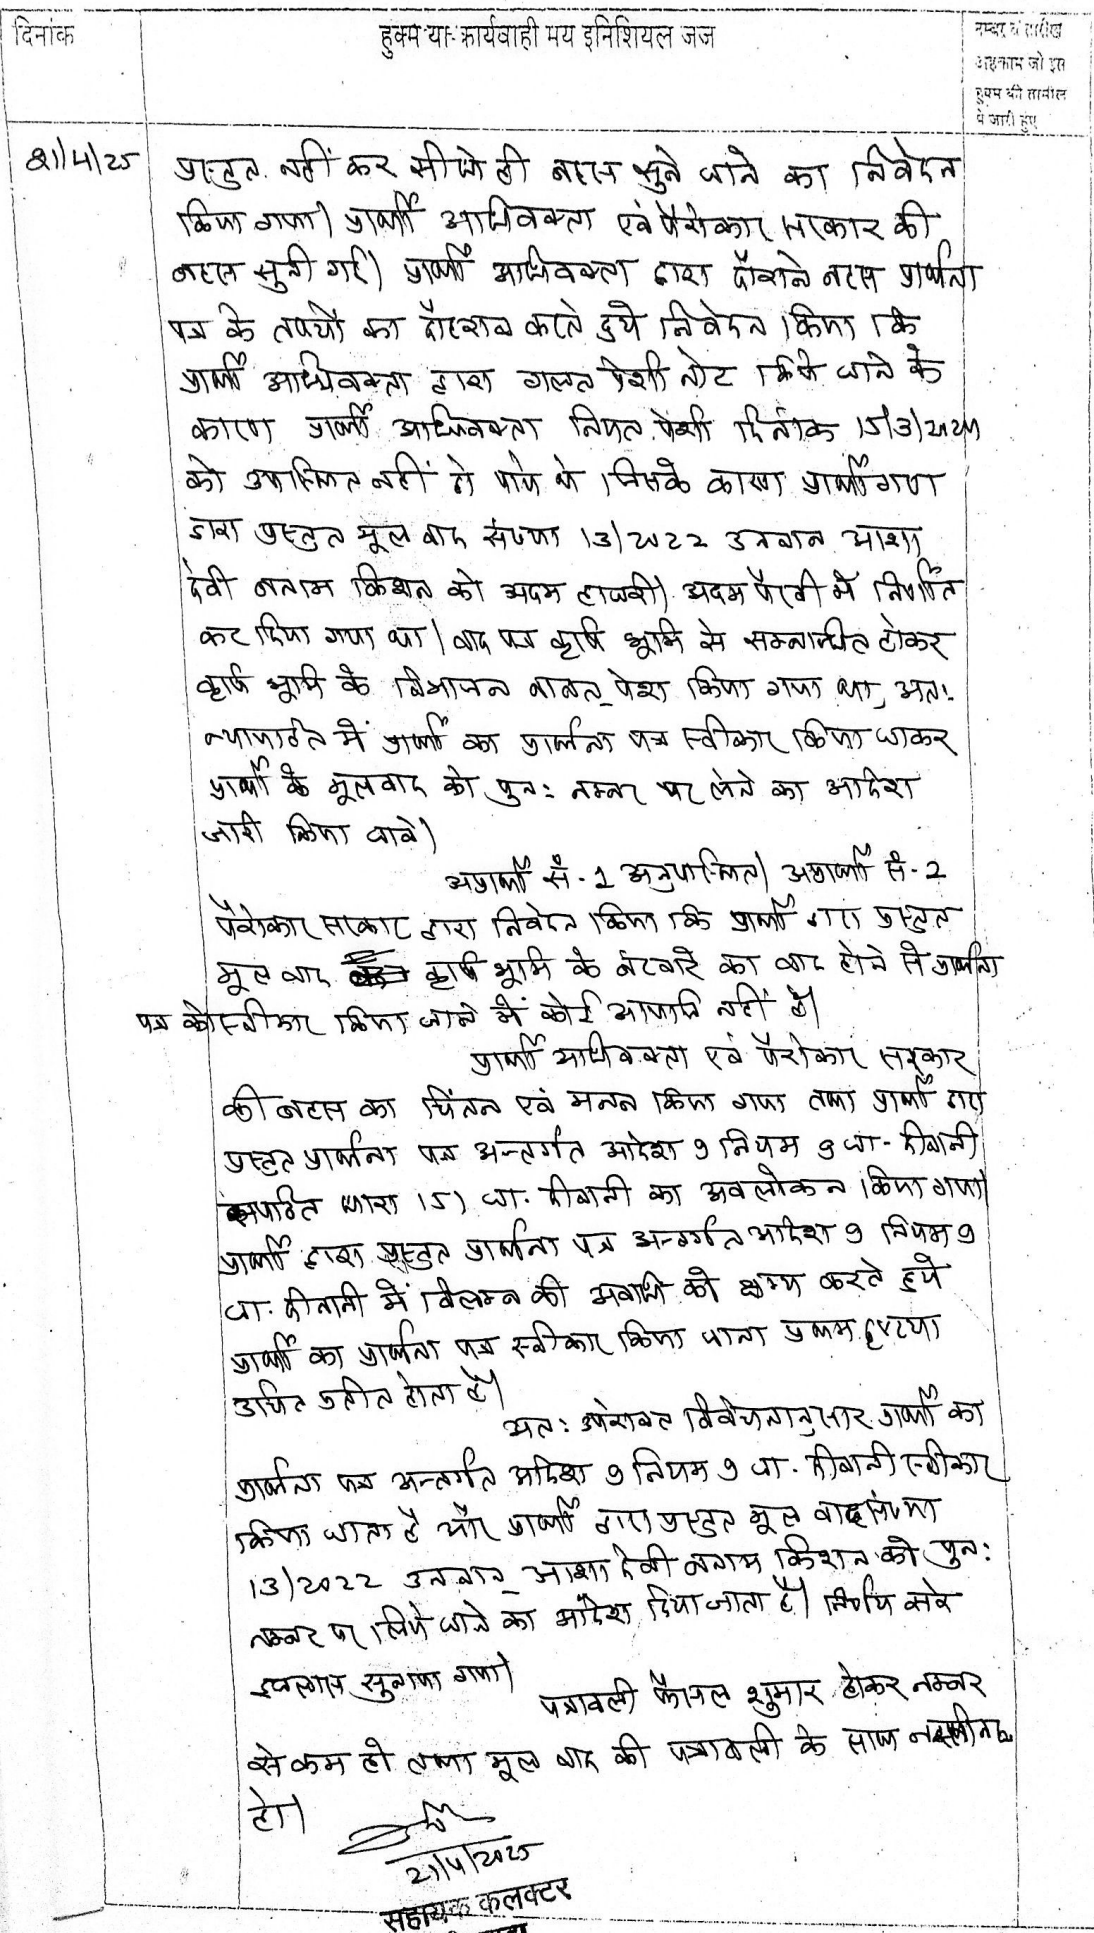 दिनांक
हुक्म या कार्यवाही मय इनिशियल जज
नम्बर व तारीख
अहकाम जो इस
हुक्म की तामील
में जारी हुए
21/4/25
प्रस्तुत नहीं कर सीधे ही बहस सुने जाने का निवेदन
किया गया। प्रार्थी अधिवक्ता एवं पैरोकार सरकार की
बहस सुनी गई। प्रार्थी अधिवक्ता द्वारा दौराने बहस प्रार्थना
पत्र के तथ्यों का दोहरान करते हुये निवेदन किया कि
प्रार्थी अधिवक्ता द्वारा गलत पेशी नोट किये जाने के
कारण प्रार्थी अधिवक्ता नियत पेशी दिनांक 15/3/2024
को उपस्थित नहीं हो पाये थे जिसके कारण प्रार्थीगण
द्वारा प्रस्तुत मूल वाद संख्या 13/2022 उनवान आशा
देवी बनाम किशन को अदम हाजरी। अदम पैरवी में निर्णित
कर दिया गया था। वाद पत्र कृषि भूमि से सम्बन्धित होकर
कृषि भूमि के विभाजन बाबत पेश किया गया था, अतः
न्यायहित में प्रार्थी का प्रार्थना पत्र स्वीकार किया जाकर
प्रार्थी के मूलवाद को पुनः नम्बर पर लेने का आदेश
जारी किया जावे।
अप्रार्थी सं.1 अनुपस्थित। अप्रार्थी सं.2
पैरोकार सरकार द्वारा निवेदन किया कि प्रार्थी द्वारा प्रस्तुत
मूल वाद कृषि भूमि के बंटवारे का वाद होने से प्रार्थना
पत्र को स्वीकार किया जाने में कोई आपत्ति नहीं है।
प्रार्थी अधिवक्ता एवं पैरोकार सरकार
की बहस का चिंतन एवं मनन किया गया तथा प्रार्थी द्वारा
प्रस्तुत प्रार्थना पत्र अन्तर्गत आदेश 9 नियम 9 जा. दीवानी
सपठित धारा 151 जा. दीवानी का अवलोकन किया गया।
प्रार्थी द्वारा प्रस्तुत प्रार्थना पत्र अन्तर्गत आदेश 9 नियम 9
जा. दीवानी में विलम्ब की अवधि को क्षम्य करते हुये
प्रार्थी का प्रार्थना पत्र स्वीकार किया जाना प्रथम दृष्टया
उचित प्रतीत होता है।
अतः उपरोक्त विवेचनानुसार प्रार्थी का
प्रार्थना पत्र अन्तर्गत आदेश 9 नियम 9 जा. दीवानी स्वीकार
किया जाता है और प्रार्थी द्वारा प्रस्तुत मूल वाद संख्या
13/2022 उनवान आशा देवी बनाम किशन को पुनः
नम्बर पर लिये जाने का आदेश दिया जाता है। निर्णय सरे
इजलास सुनाया गया।
पत्रावली फैसल शुमार होकर नम्बर
से कम हो तथा मूल वाद की पत्रावली के साथ नस्तीबद्ध
हो।
21/4/2025
सहायक कलक्टर